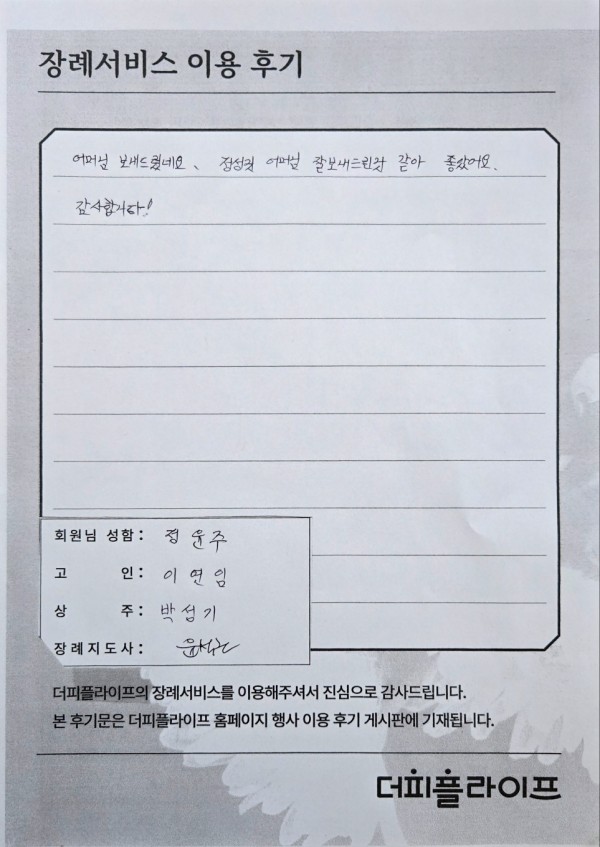 장례서비스 이용 후기
어머님 보내드렸네요. 정성껏 어머님 잘보내드린것 같아 좋았어요.
감사합니다!
회원님 성함: 정윤주
고 인: 이연임
상 주: 박섭기
장례지도사:
더피플라이프의 장례서비스를 이용해주셔서 진심으로 감사드립니다.
본 후기문은 더피플라이프 홈페이지 행사 이용 후기 게시판에 기재됩니다.
더피플라이프